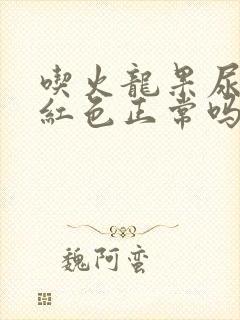 喫火龍果尿
紅色正常嗎
魏阿蛮